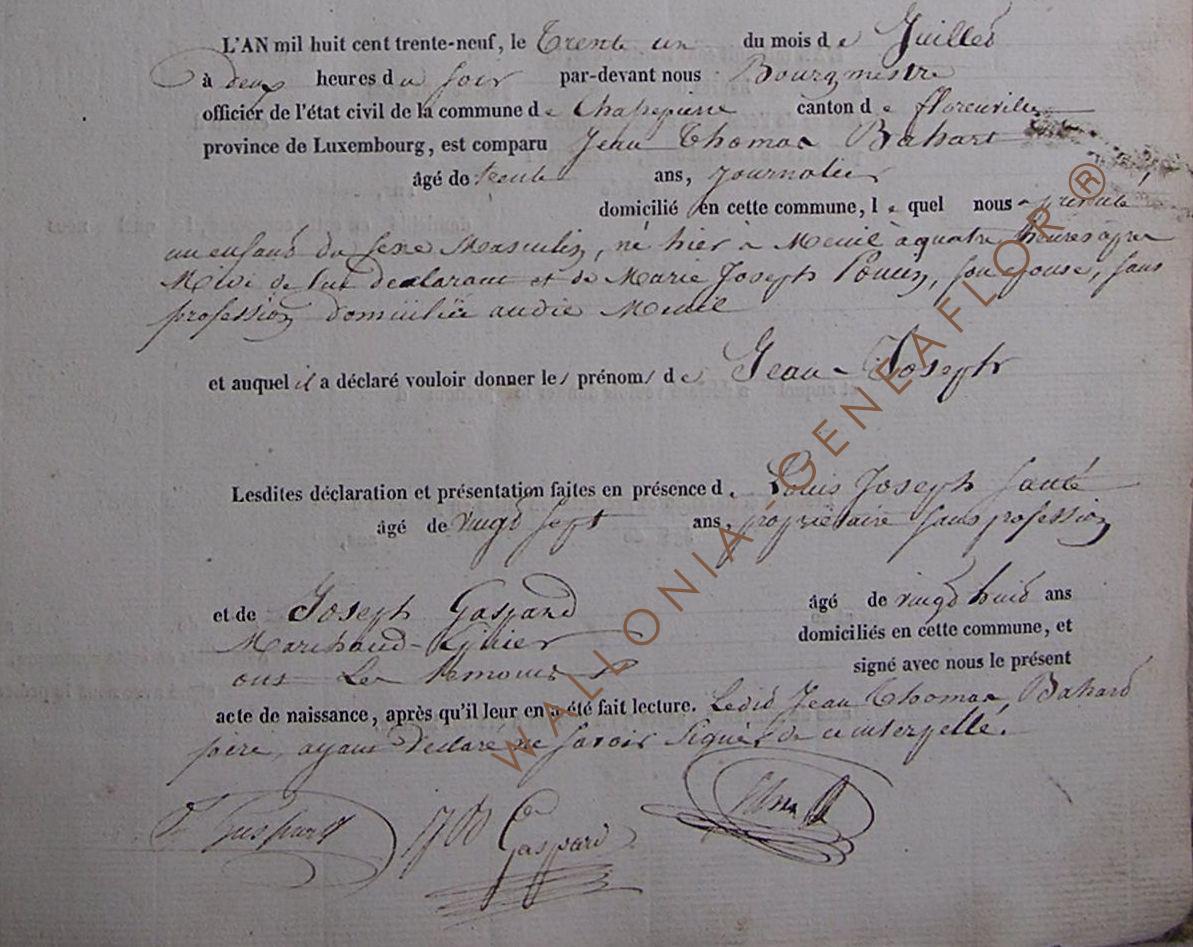 L'AN mil huit cent trente-neuf, le Trente un du mois de Juillet
à deux heures du soir par-devant nous Bourgmestre
officier de l'état civil de la commune de Chassepierre canton de florenville
province de Luxembourg, est comparu Jean Thomas Bahart
âgé de trente ans, Journalier
domicilié en cette commune, lequel nous a présenté
un enfant du sexe Masculin, né hier à Menil à quatre heures après
Midi de lui déclarant et de Marie Joseph Poncin, son épouse, sans
profession domiciliée audit Menil
et auquel il a déclaré vouloir donner les prénoms de Jean-Joseph
Lesdites déclaration et présentation faites en présence de Louis Joseph
âgé de vingt sept ans, propriétaire sans profession
et de Joseph Gaspard âgé de vingt huit ans
Marchand-Epicier domiciliés en cette commune, et
ont Les témoins signé avec nous le présent
acte de naissance, après qu'il leur en a été fait lecture. Ledit Jean Thomas Bahard
père, ayant déclaré ne savoir signer de ce interpellé.
J Gaspard JB Gaspard
WALLONIA-GENEAFLOR ®